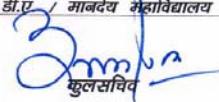 डी.ए. / मानदेय महाविद्यालय
कुलसचिव